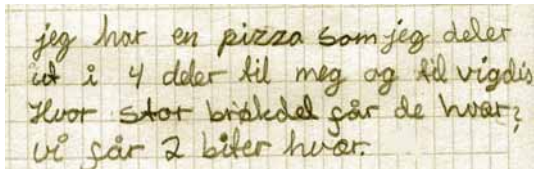 jeg har en pizza som jeg deler
ut i 4 deler til meg og til vigdis
Hvor stor brøkdel får de hvær?
vi får 2 biter hvær.